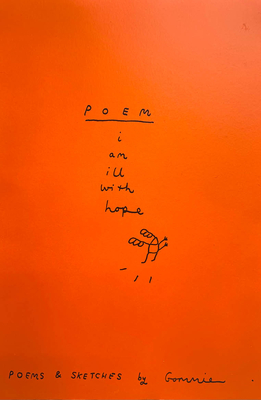 POEM
i
am
ill
with
hope
POEMS & SKETCHES by